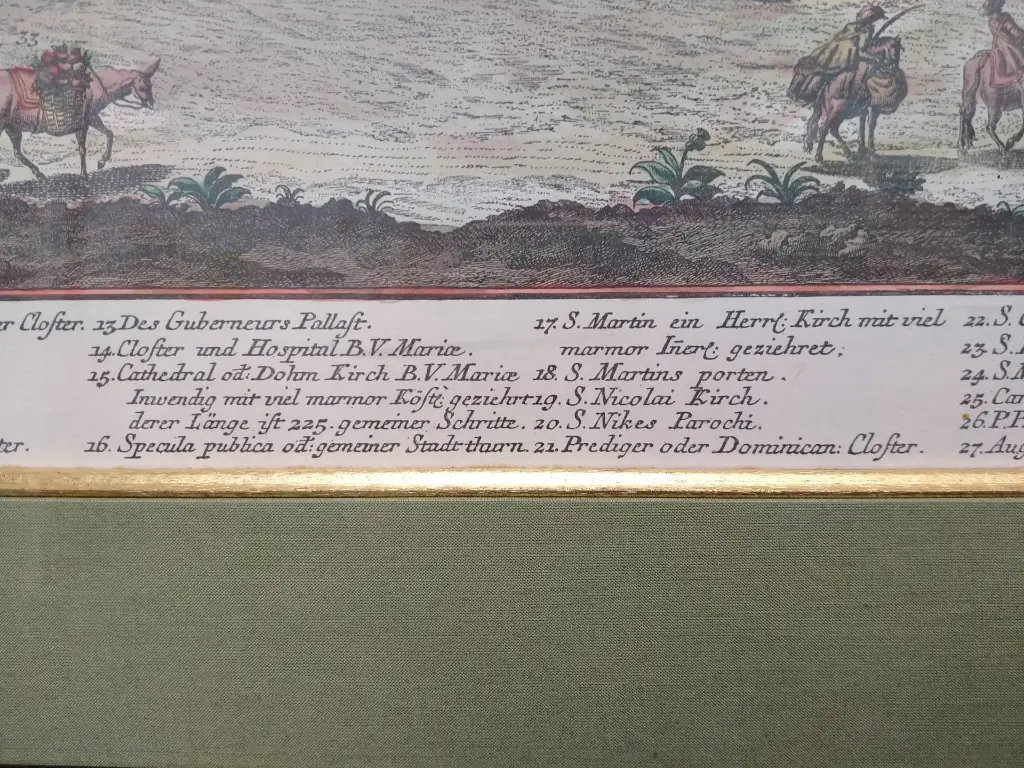 33
er Closter. 13 Des Guberneurs Pallast.
14. Closter und Hospital B.V. Mariæ.
15. Cathedral od: Dohm Kirch B.V. Mariæ
Inwendig mit viel marmor Köstl: geziehrt
derer Länge ist 225. gemeiner Schritte.
ter. 16. Specula publica od: gemeiner Stadt thurn.
17. S. Martin ein Herrl: Kirch mit viel
marmor Iñerl: geziehret;
18. S. Martins porten.
19. S. Nicolai Kirch.
20. S. Nikes Parochi.
21. Prediger oder Dominican: Closter.
22. S.
23. S.
24. S.
25. Car
26. P.
27. Aug